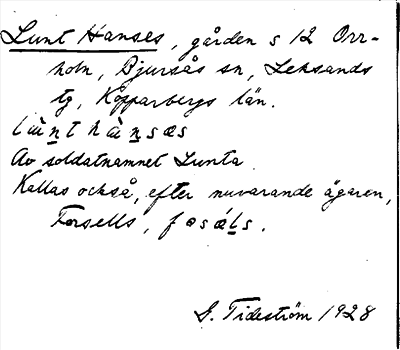 Lunt Hanses, gården s 12 Orr-
holn, Bjursås sn, Leksands
tg, Kopparbergs län.
lùn̲t hàn̲sæs
Av soldatnamnet Lunta.
Kallas också, efter nuvarande ägaren,
Forsells, fosǽl̲s.
G. Tideström 1928